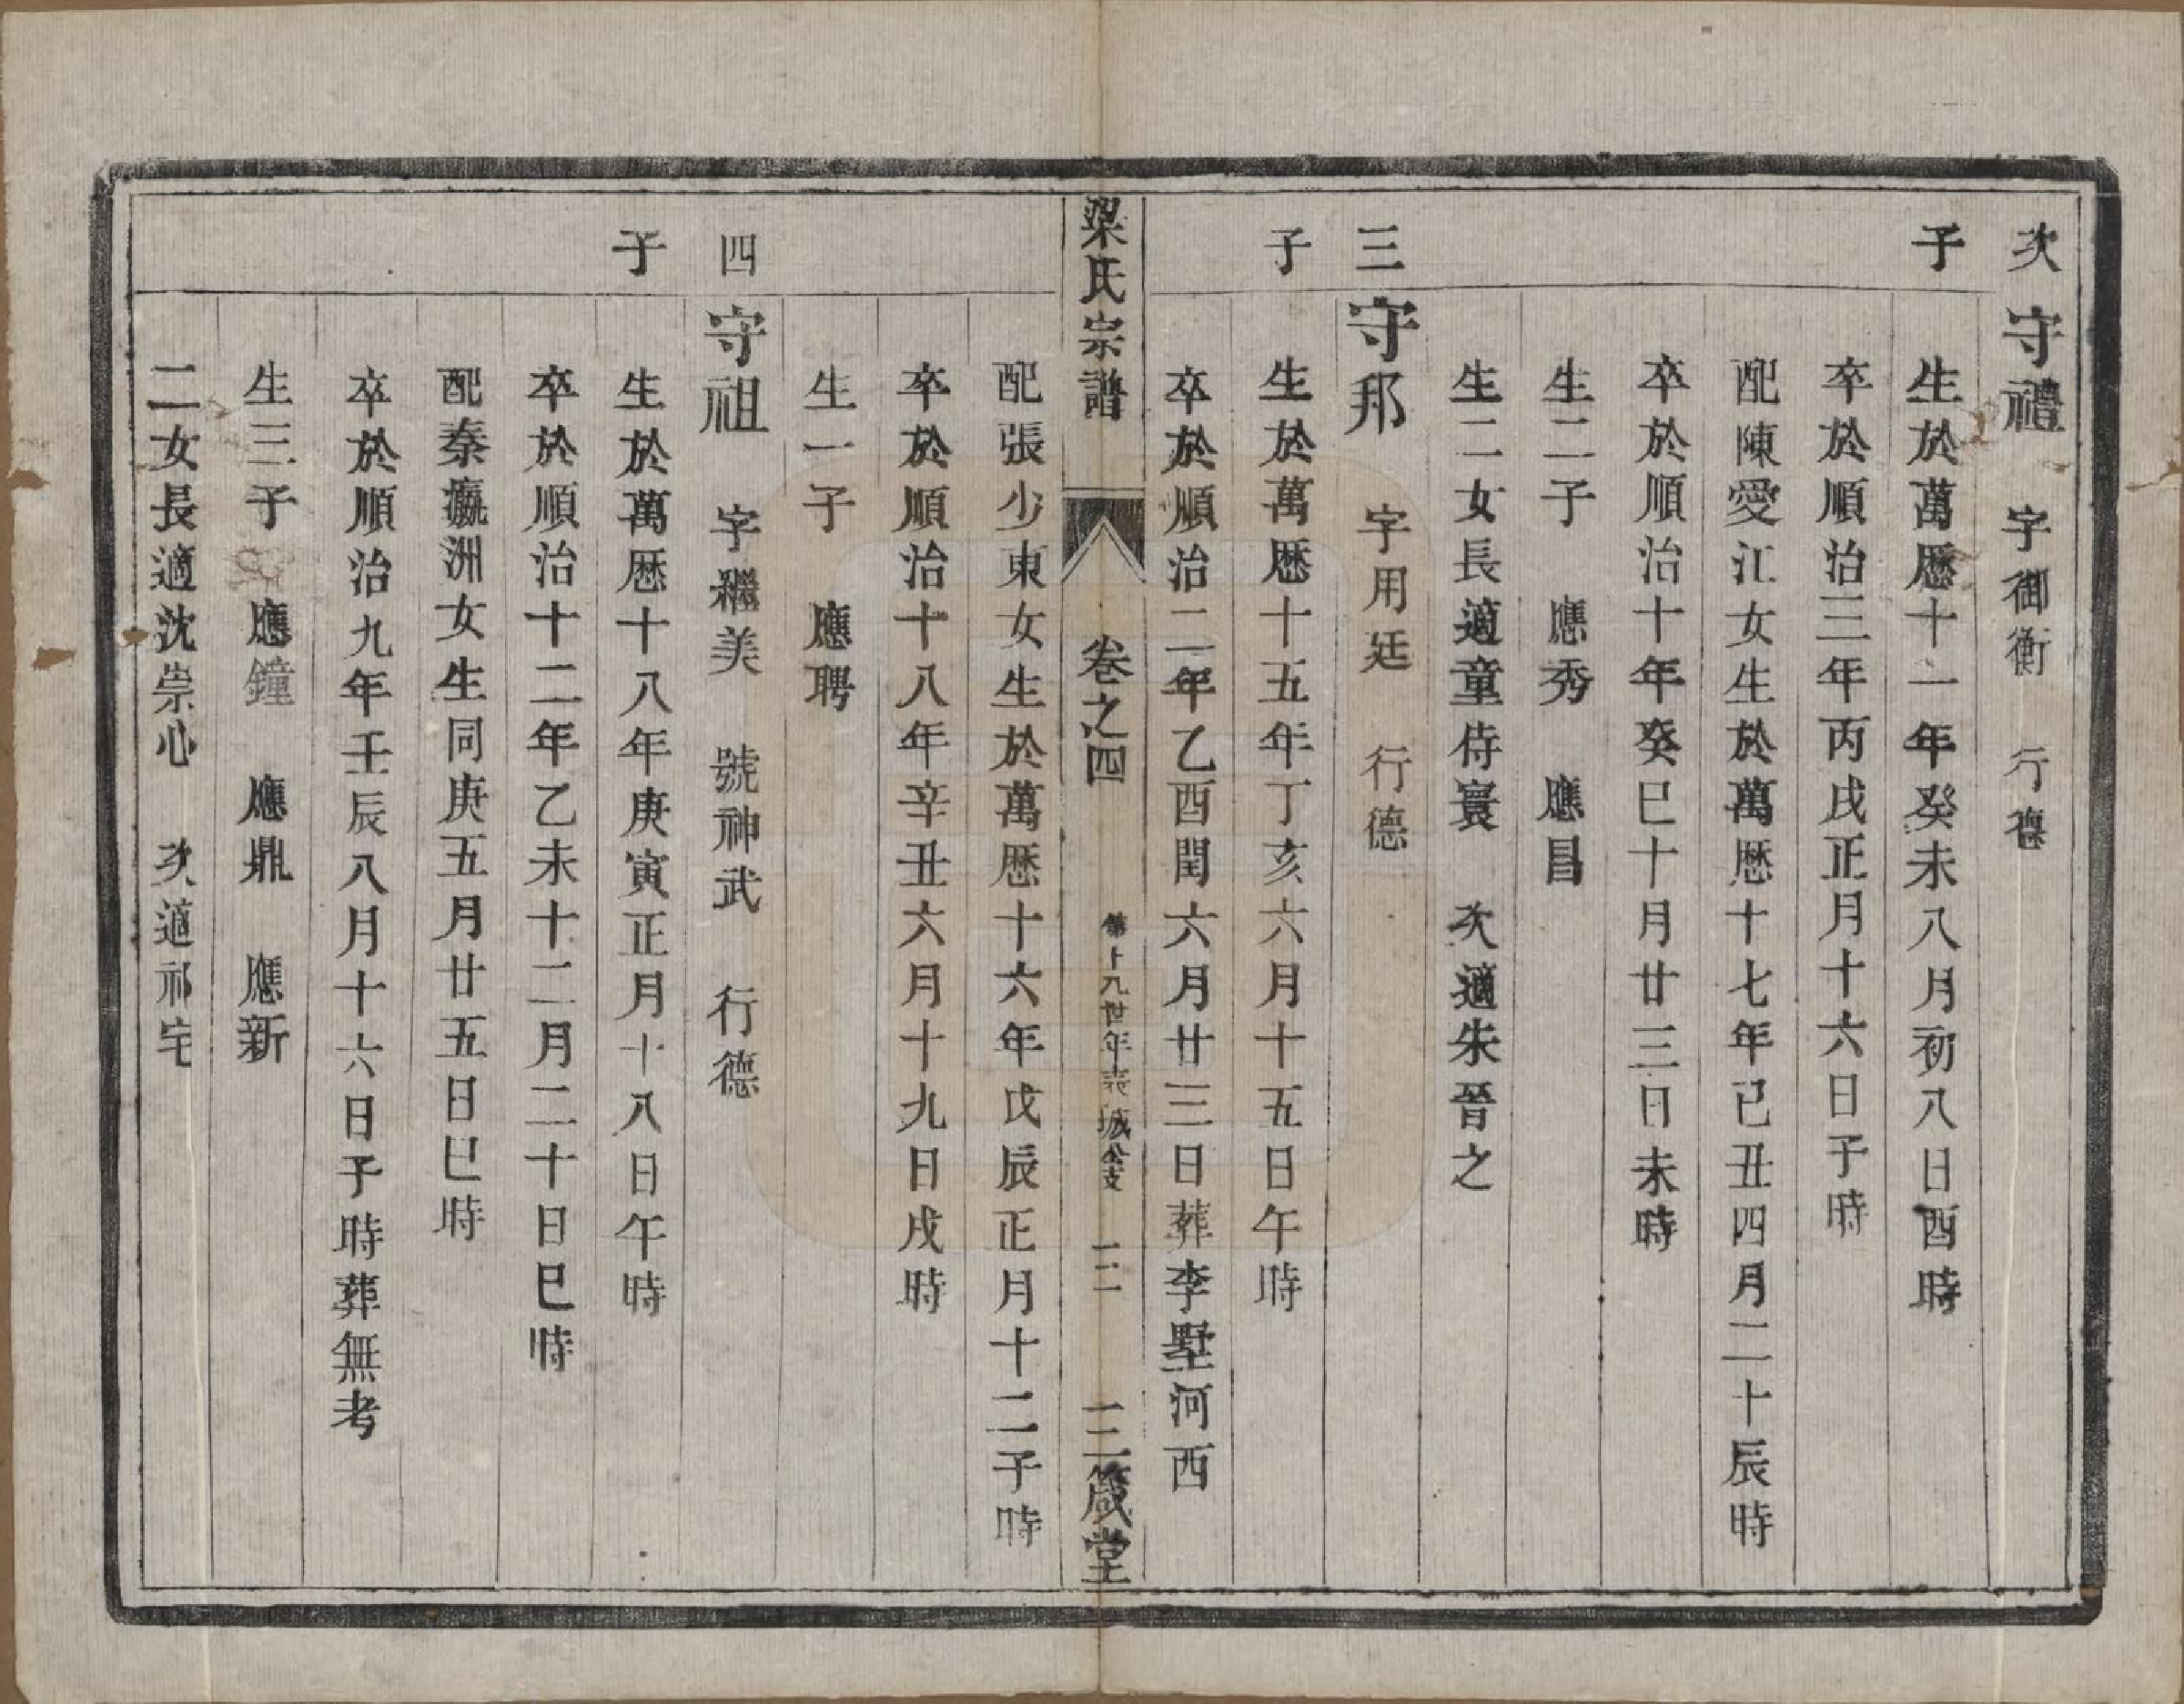 次子
守禮　字御衡　行德
生於萬歷十一年癸未八月初八日酉時
卒於順治三年丙戌正月十六日子時
配陳愛江女生於萬歷十七年己丑四月二十辰時
卒於順治十年癸巳十月廿三日未時
生二子　應秀　應昌
生二女長適童侍寰　次適朱晉之
三子
守邦　字用廷　行德
生於萬歷十五年丁亥六月十五日午時
卒於順治二年乙酉閏六月廿三日葬李墅河西
梁氏宗譜　卷之四　第十九世年表城公支　二　三箴堂
配張少東女生於萬歷十六年戊辰正月十二子時
卒於順治十八年辛丑六月十九日戌時
生一子　應聘
四子
守祖　字繼美　號神武　行德
生於萬歷十八年庚寅正月十八日午時
卒於順治十二年乙未十二月二十日巳時
配秦瀛洲女生同庚五月廿五日巳時
卒於順治九年壬辰八月十六日子時葬無考
生三子　應鐘　應鼎　應新
二女長適沈崇心　次適祁宅